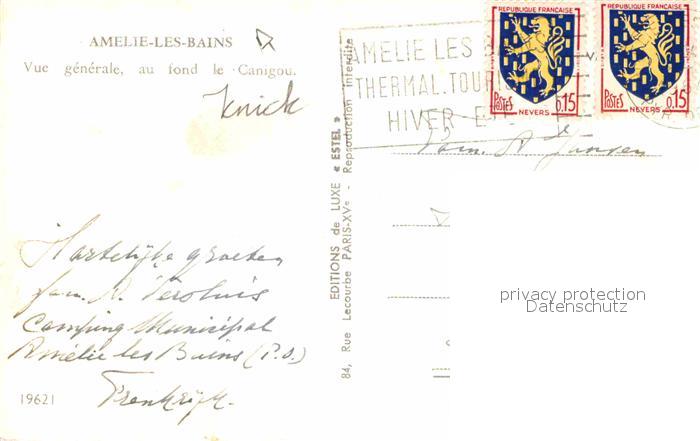 AMELIE-LES-BAINS
Vue générale, au fond le Canigou.
Hartelijke groeten
fam. N.
Camping Municipal
Amélie les Bains (P.O.)
Frankrijk.
19621
EDITIONS de LUXE « ESTEL »
84, Rue Lecourbe PARIS-XVe - Reproduction interdite
AMELIE LES B
THERMAL.TOUR
HIVER E
REPUBLIQUE FRANÇAISE
POSTES
0,15
NEVERS
REPUBLIQUE FRANÇAISE
POSTES
0,15
NEVERS
Fam. A. Jansen
privacy protection
Datenschutz